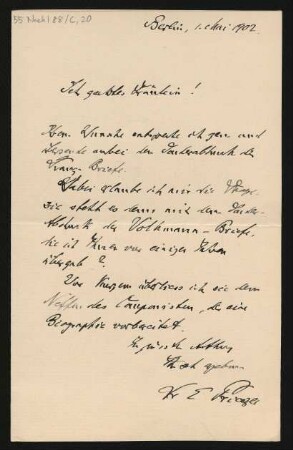 55 Nachl 88/C,20
Berlin, 1. Mai 1902.
Sehr geehrtes Fräulein!
Ihrem Wunsche entspreche ich gern und
übersende anbei den Sonderabdruck der
Franz-Briefe.
Dabei erlaube ich mir die Frage,
wie steht es denn mit dem
Abdruck der Volkmann-Briefe,
die ich Ihnen vor einigen Jahren
übergab?
Vor Kurzem überliess ich sie dem
Neffen des Componisten, der eine
Biographie vorbereitet.
In
Ihr ergebener
Dr E